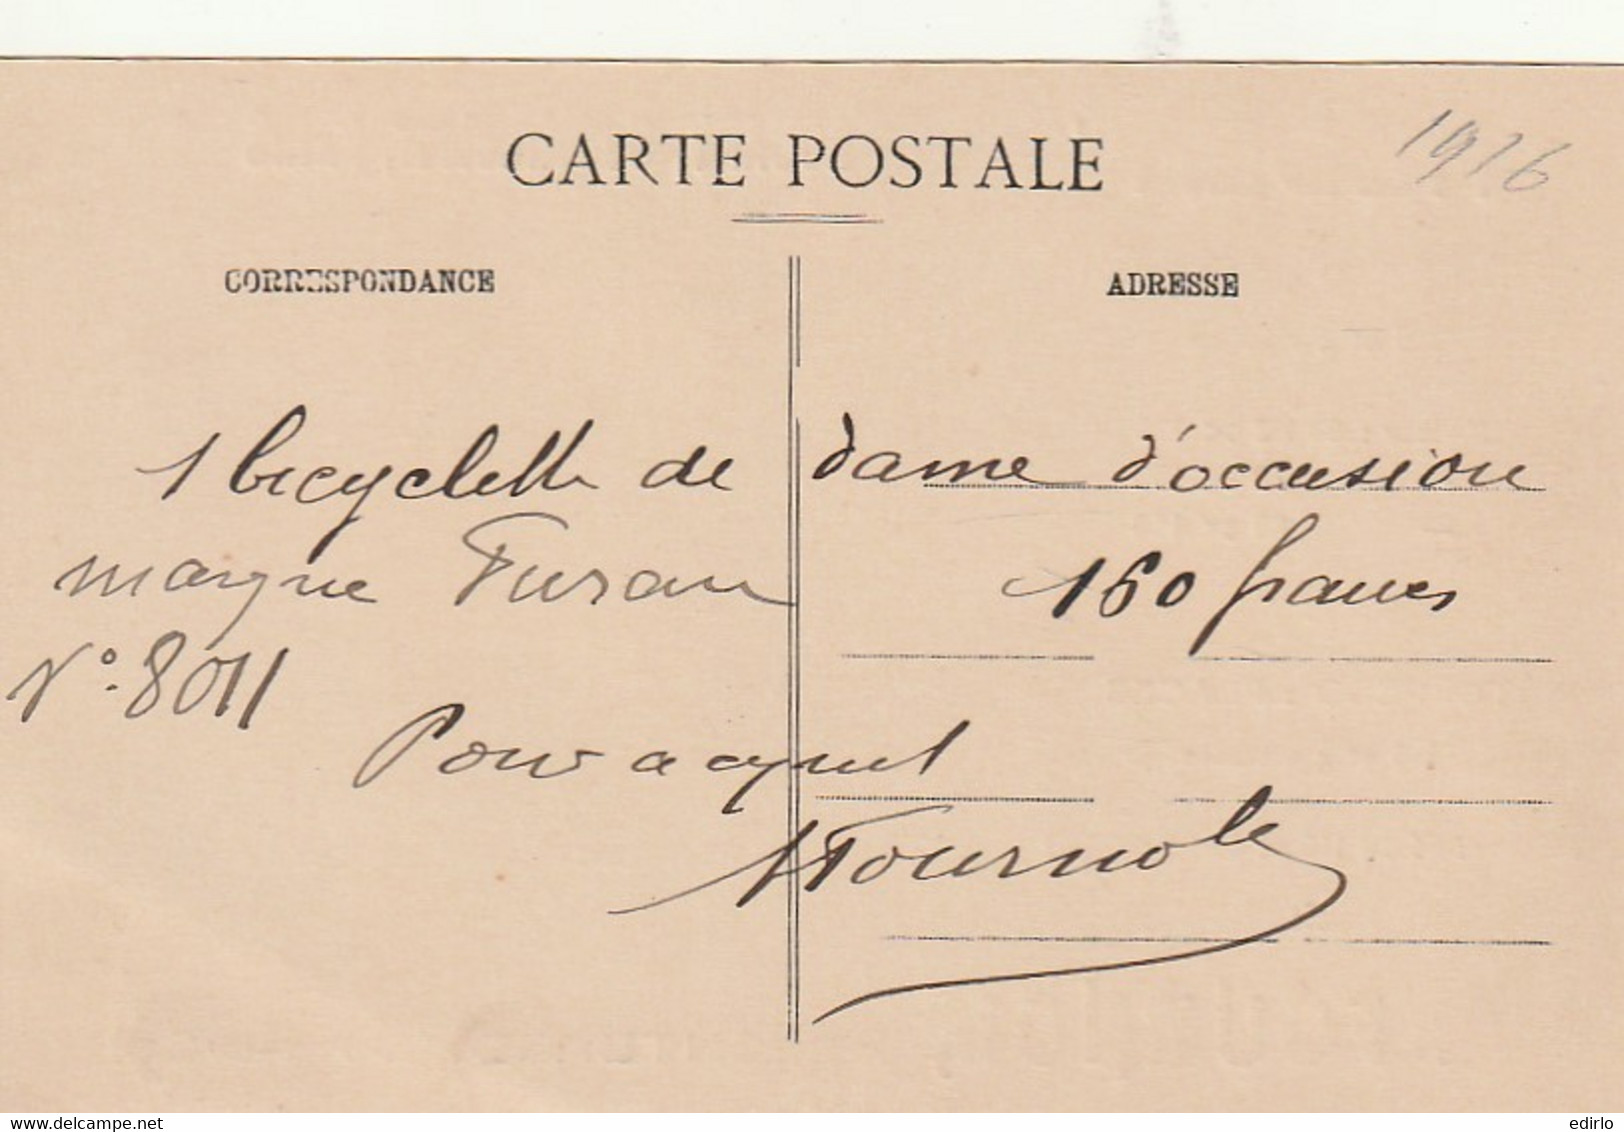 CARTE POSTALE
1926
CORRESPONDANCE
ADRESSE
1 bicyclette de dame d'occasion
marque Furan 160 francs
N° 8011
Pour acquit
Fournole
delcampe.net
edirlo